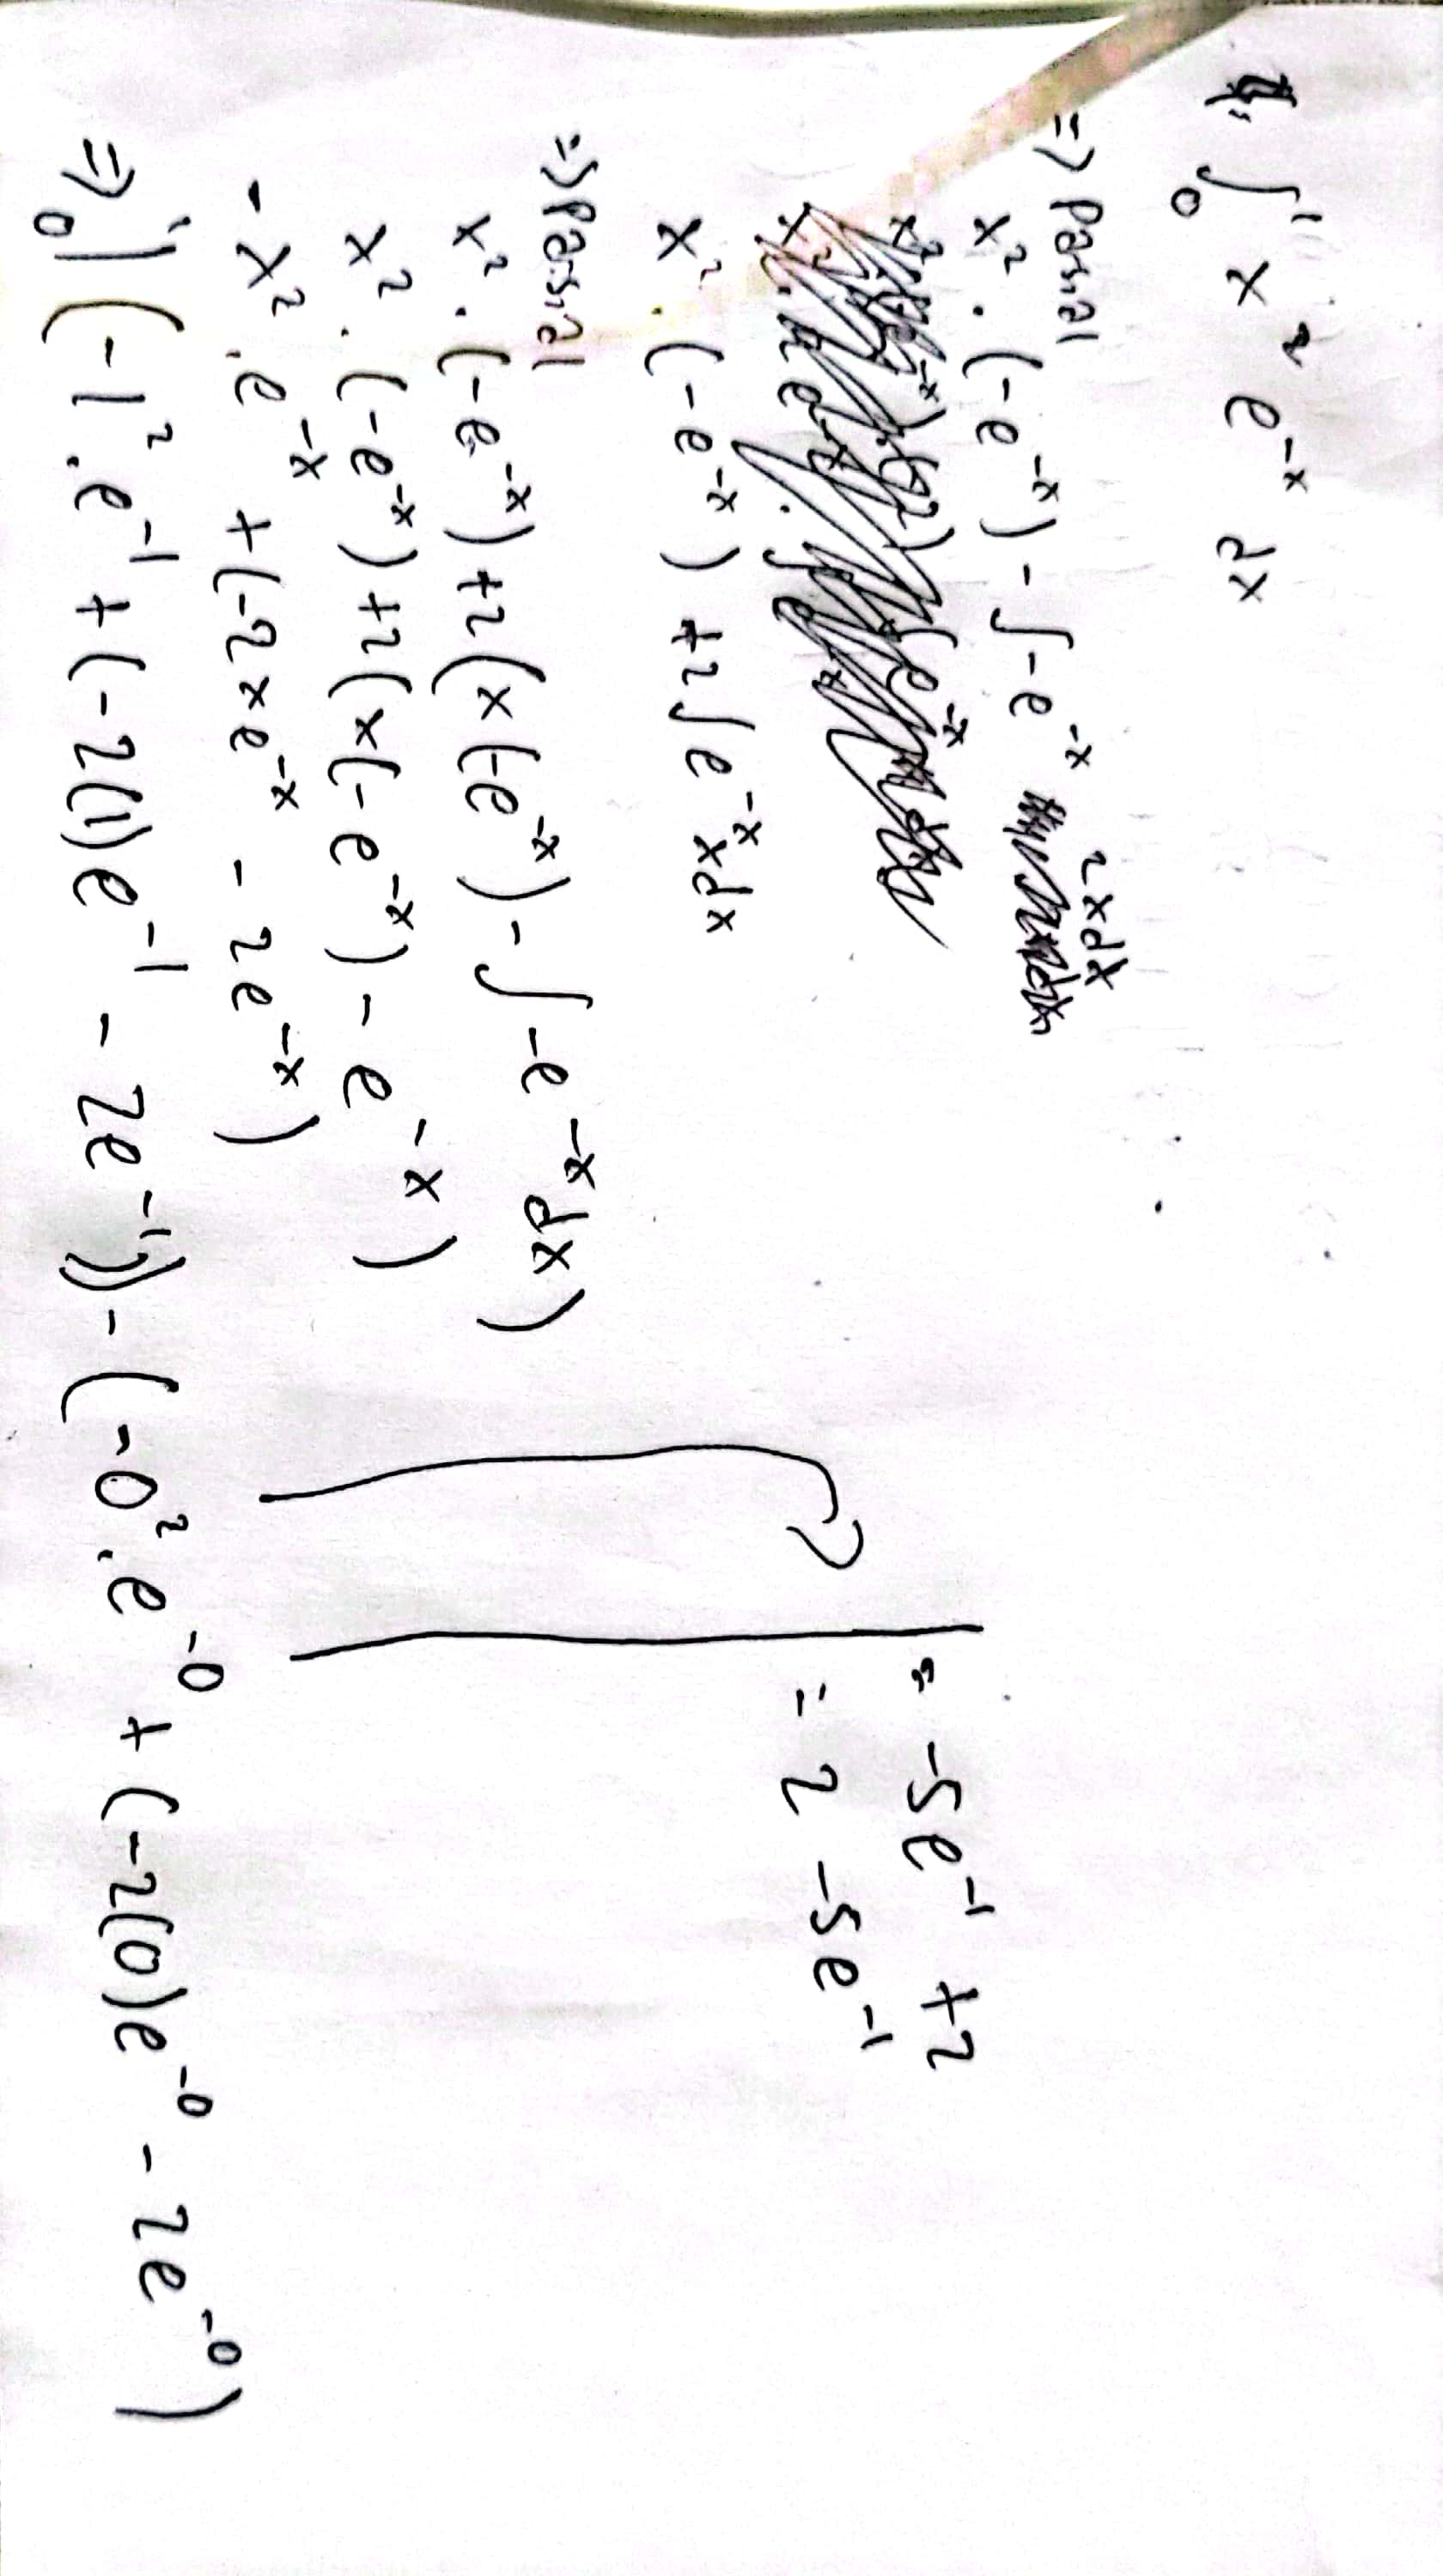 ∫₀¹ x² e⁻ˣ dx
=> Parsial
x² . (-e⁻ˣ) - ∫-e⁻ˣ 2xdx
x² . (-e⁻ˣ) +2∫e⁻ˣxdx
=> Parsial
x² . (-e⁻ˣ) +2(x(-e⁻ˣ) - ∫-e⁻ˣdx)
x² . (-e⁻ˣ) +2(x(-e⁻ˣ) - e⁻ˣ)
-x² .e⁻ˣ +(-2xe⁻ˣ - 2e⁻ˣ)
=> ₀|¹ (-1².e⁻¹ + (-2(1)e⁻¹ - 2e⁻¹)) - (-0².e⁻⁰ + (-2(0)e⁻⁰ - 2e⁻⁰)
= -5e⁻¹ +2
= 2 -5e⁻¹